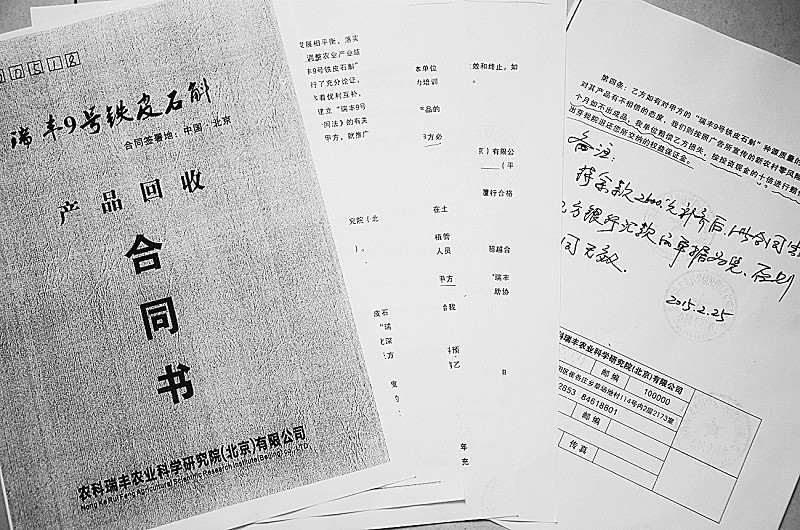 瑞丰9号铁皮石斛
合同签署地：中国·北京
产品回收
合同书
农科瑞丰农业科学研究院(北京)有限公司
发展相平衡，落实
调整农业产业结
丰9号铁皮石斛"
行了充分论证，
着优利互补，
建立"瑞丰9号
同法》的有关
甲方，就推广
究院（北
）。
皮石
"瑞
化深
方
本单位
力培训
产品的
方必
在土
植管
人员
甲方
合我
科预
效和终止。如
京）有限公
（平
履行合格
超越合
"瑞丰
助协
年
充
第四条：乙方如有对甲方的"瑞丰9号铁皮石斛"种源质量
对其产品有不相信的态度，我们则按照广告所宣传的新农村零风险
个月如不出成品，我单位赔偿乙方损失，按投资现金的十倍进行赔
出芽我院退还您所交纳的权益保证金。
备注：
待余款2600元补齐后，此合同
乙方银行汇款的单据为凭，否则
同无效.
2015.2.25
科瑞丰农业科学研究院(北京)有限公司
邮编 100000
阳区崔各庄乡草场地村114号内2层2173室
2853 84618601
邮编
传真